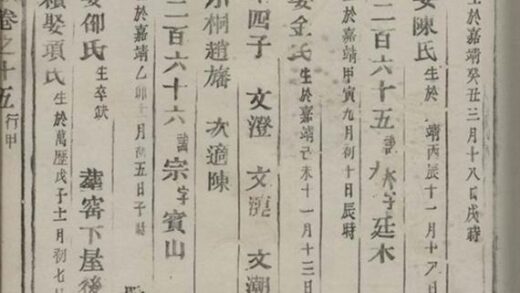 生於嘉靖癸丑三月十八日戌時
娶陳氏 生於 靖丙辰十一月十九日
二百六十五 諱 字廷木
生於嘉靖甲寅九月初十日辰時
娶金氏 生於嘉靖己未十一月十三日
四子 文澄 文 文潮
桐趙旛 次適陳
二百六十六 諱宗字賓山
生於嘉靖乙卯十一月初五日子時
娶邵氏 生卒缺 葬窖下屋後
娶項氏 生於萬曆戊子十二月初七
卷之十五 行甲